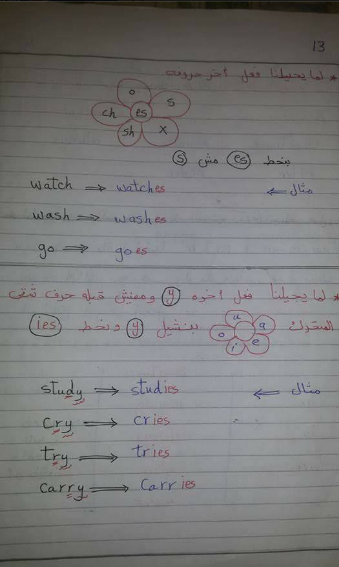 13
* لما يجيلنا فعل أخر حروفه
o
ch es s
sh x
بنحط es مش s
مثال
watch ⇒ watches
wash ⇒ washes
go ⇒ goes
* لما يجيلنا فعل أخره y ومفيش قبله حرف من
المتحركة
u
o a
i e
بنشيل y ونحط ies
مثال
study → studies
cry → cries
try → tries
carry → carries